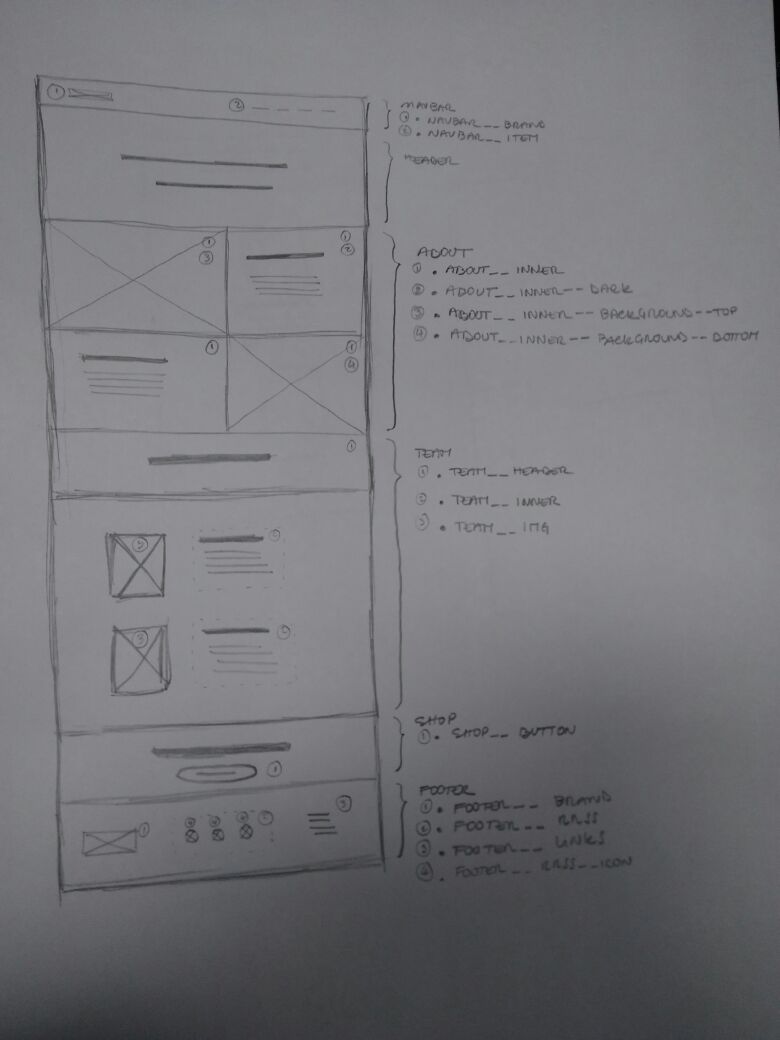 ① ②
NAVBAR
① • NAVBAR__ BRAND
② • NAVBAR__ ITEM
HEADER
① ③
① ②
ABOUT
① • ABOUT__ INNER
② • ABOUT__ INNER-- DARK
③ • ABOUT__ INNER-- BACKGROUND--TOP
④ • ABOUT__INNER-- BACKGROUND-- BOTTOM
①
① ④
①
TEAM
① • TEAM__ HEADER
② • TEAM__ INNER
③ • TEAM__ IMG
③ ②
③ ②
SHOP
① • SHOP__ BUTTON
①
FOOTER
① • FOOTER__ BRAND
② • FOOTER__ RRSS
③ • FOOTER__ LINKS
④ • FOOTER__ RRSS--ICON
① ④ ④ ④ ② ③